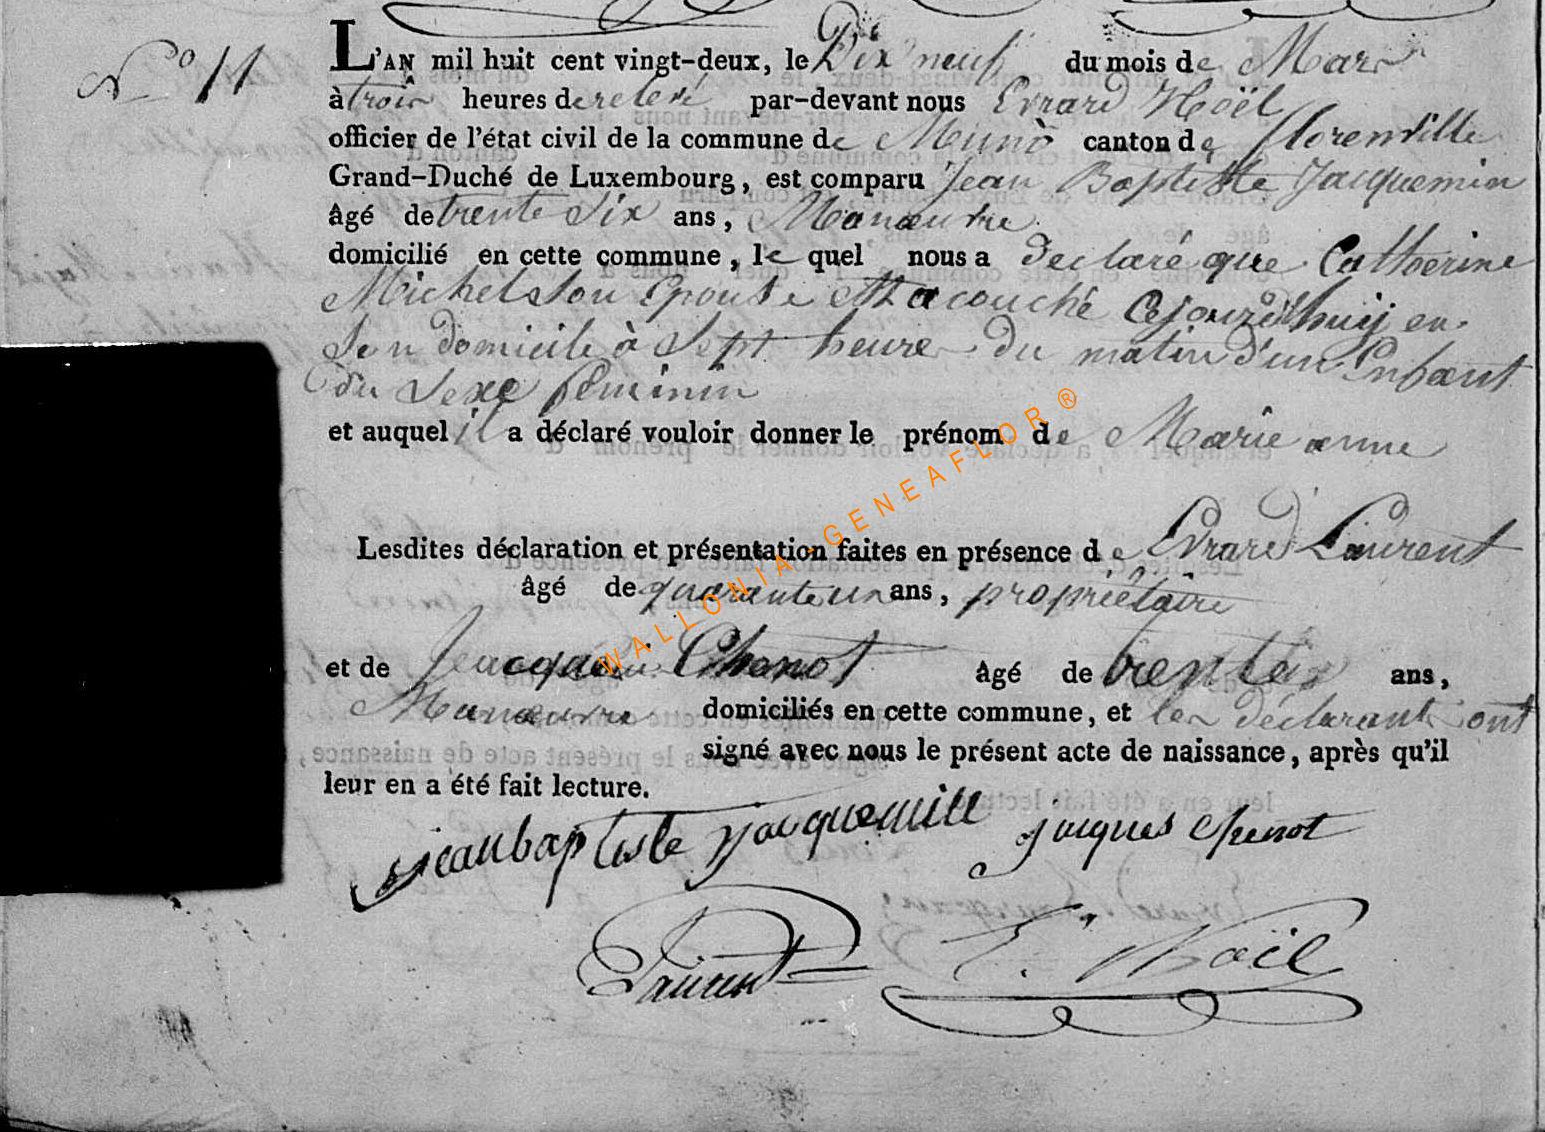 N° 11
L'AN mil huit cent vingt-deux, le Dix neuf du mois de Mars
à trois heures de relevé par-devant nous Evrard Noël
officier de l'état civil de la commune de Muno canton de florenville
Grand-Duché de Luxembourg, est comparu Jean Baptiste Jacquemin
âgé de trente Six ans, Manœuvre
domicilié en cette commune, le quel nous a declaré que Catherine
Michel Son Epouse est acouché Cejourd'huij en
Son domicile à Sept heures du matin d'un Enfant
du Sexe feminin
et auquel il a déclaré vouloir donner le prénom de Marie anne
Lesdites déclaration et présentation faites en présence de Evrard Laurent
âgé de quarante un ans, propriétaire
et de Jacques Chenot âgé de trente ans,
Manœuvre domiciliés en cette commune, et les déclarant ont
signé avec nous le présent acte de naissance, après qu'il
leur en a été fait lecture.
jeanbaptiste jacquemin jacques chenot
Laurent E. Noël
WALLONIA-GENEAFLOR ®